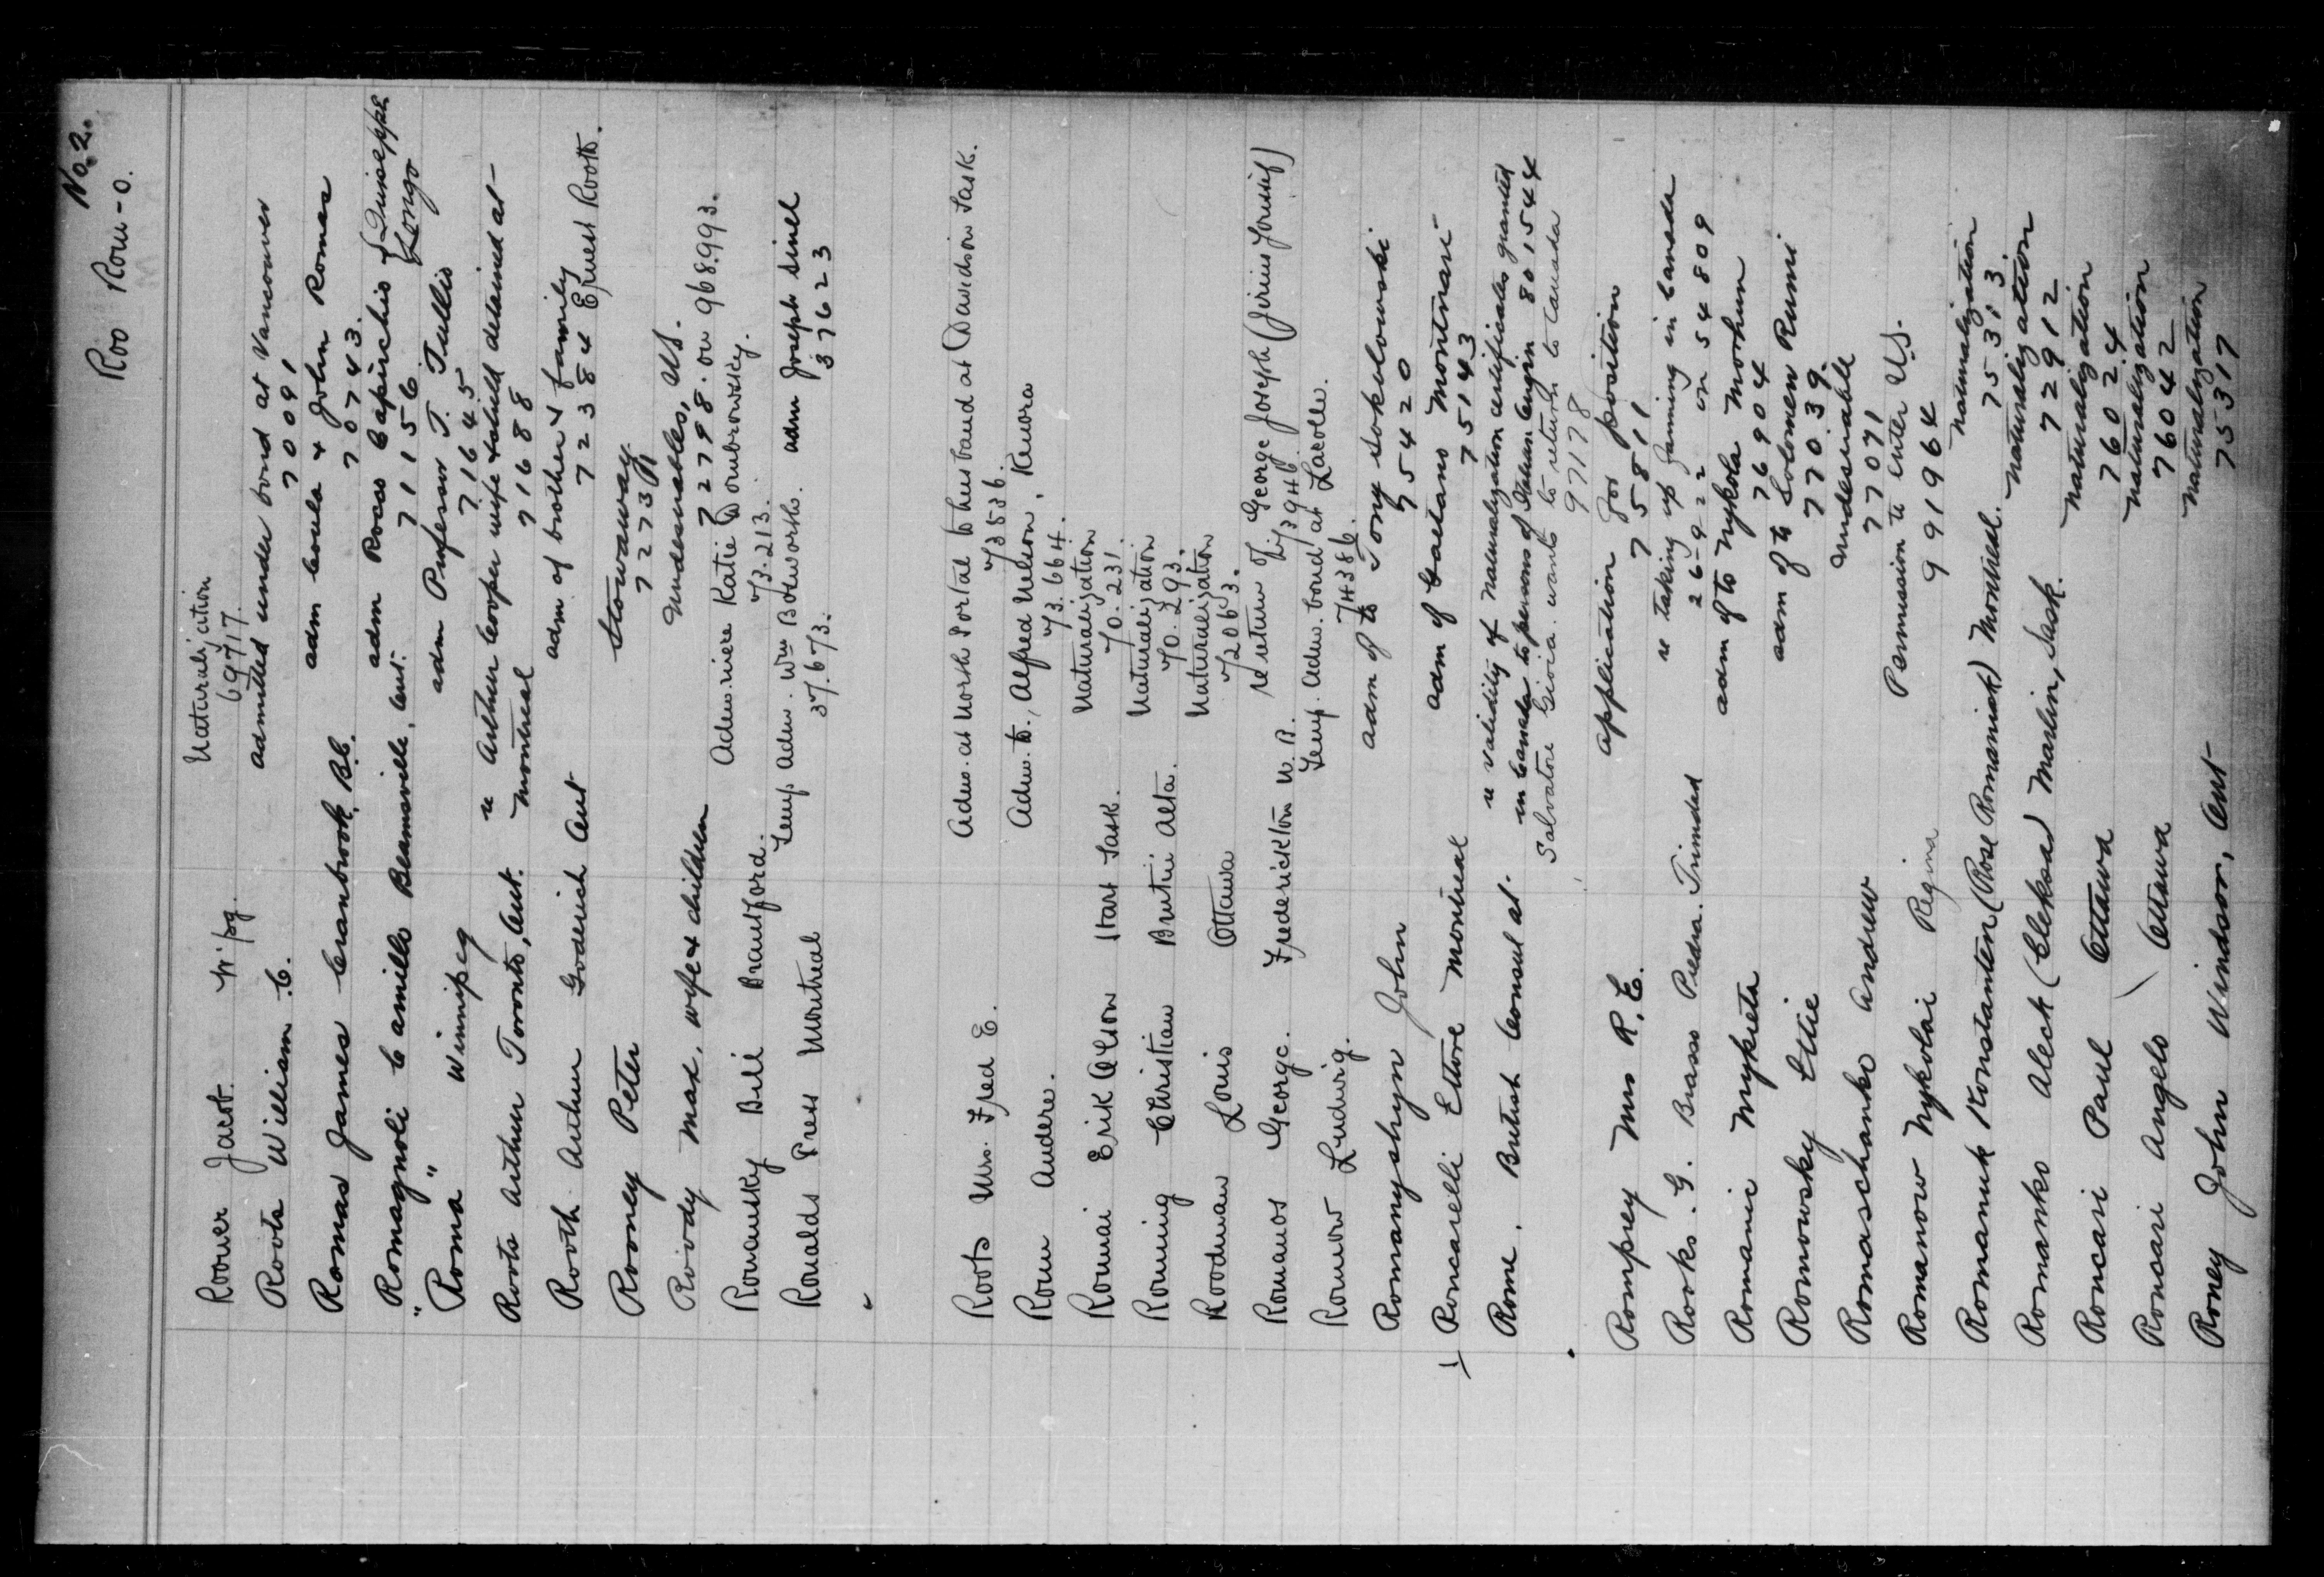 No. 2.
Roo Rom-o.
Roover Jacob. W'pg. Naturalization
69717.
Roots William C. admitted under bond at Vancouver
70091
Romas James Cranbrook, B.C. adm Coula & John Romas
70743.
Romagnoli Camillo Beamsville, Ont. adm Rocco Capirchio {Quiseppe
71156 {Longo
" Roma " Winnipeg adm Professor T. Tullio
71645
Roots Arthur Toronto, Ont. re Arthur Cooper wife & child detained at
Montreal 71688
Rooth Arthur Goderich Ont adm of brother & family
72384 Ernest Rooth.
Rooney Peter Stowaway
72731
Roody Max, wife & children Undesirables, U.S.
72798. on 968993.
Romansky Bill Brantford. Adm. niece Katie Dombrowsky.
73.213.
Ronalds Press Montreal Temp. Adm. Wm Bosworth. adm Joseph Sinel
37.673. 37623
"
Roots Mrs. Fred E. Adm. at North Portal to husband at Davidson Sask.
73536.
Rom Andere. Adm. to, Alfred Nelson, Kenora
73.664.
Romai Erik Olson Hart Sask. Naturalization
70.231.
Ronning Christian Bruderheim Alta. Naturalization
70.293.
Roodman Louis Ottawa Naturalization
72063.
Romanos George. Frederickton N.B. re return of George Joseph (Jirius Joussif)
73946.
Romow Ludwig. Temp. Adm. bond at Lacolle.
74386.
Romanyshyn John adm of to Tony Sokolowski
75420
Roncarelli Ettore Montreal adm of Gaetano Montinari
75143
Rome. British Consul at. re validity of Naturalization certificates granted
in Canada to persons of Italian Origin 801544
Salvatore Gioia. wants to return to Canada
97178
Romprey Mrs R. E. application for position
75811
Rooks. G. Brasso Piedra. Trinidad re taking up farming in Canada
26-9-22 on 54809
Romanic Mykieta adm of to Nykola Morhun
76904
Romowsky Ettie adm of to Solomen Rumi
77039.
Romaschanko Andrew Undesirable
77071
Romanow Nykolai Regina Permission to enter U.S.
991964
Romanuk Konstanten (Rose Romaniak) Montreal. Naturalization
75313.
Romanko Aleck (Elekoa) Marlin, Sask. Naturalization
72912
Roncari Paul Ottawa Naturalization
76024
Roncari Angelo Ottawa Naturalization
76042
Roney John Windsor, Ont Naturalization
75317